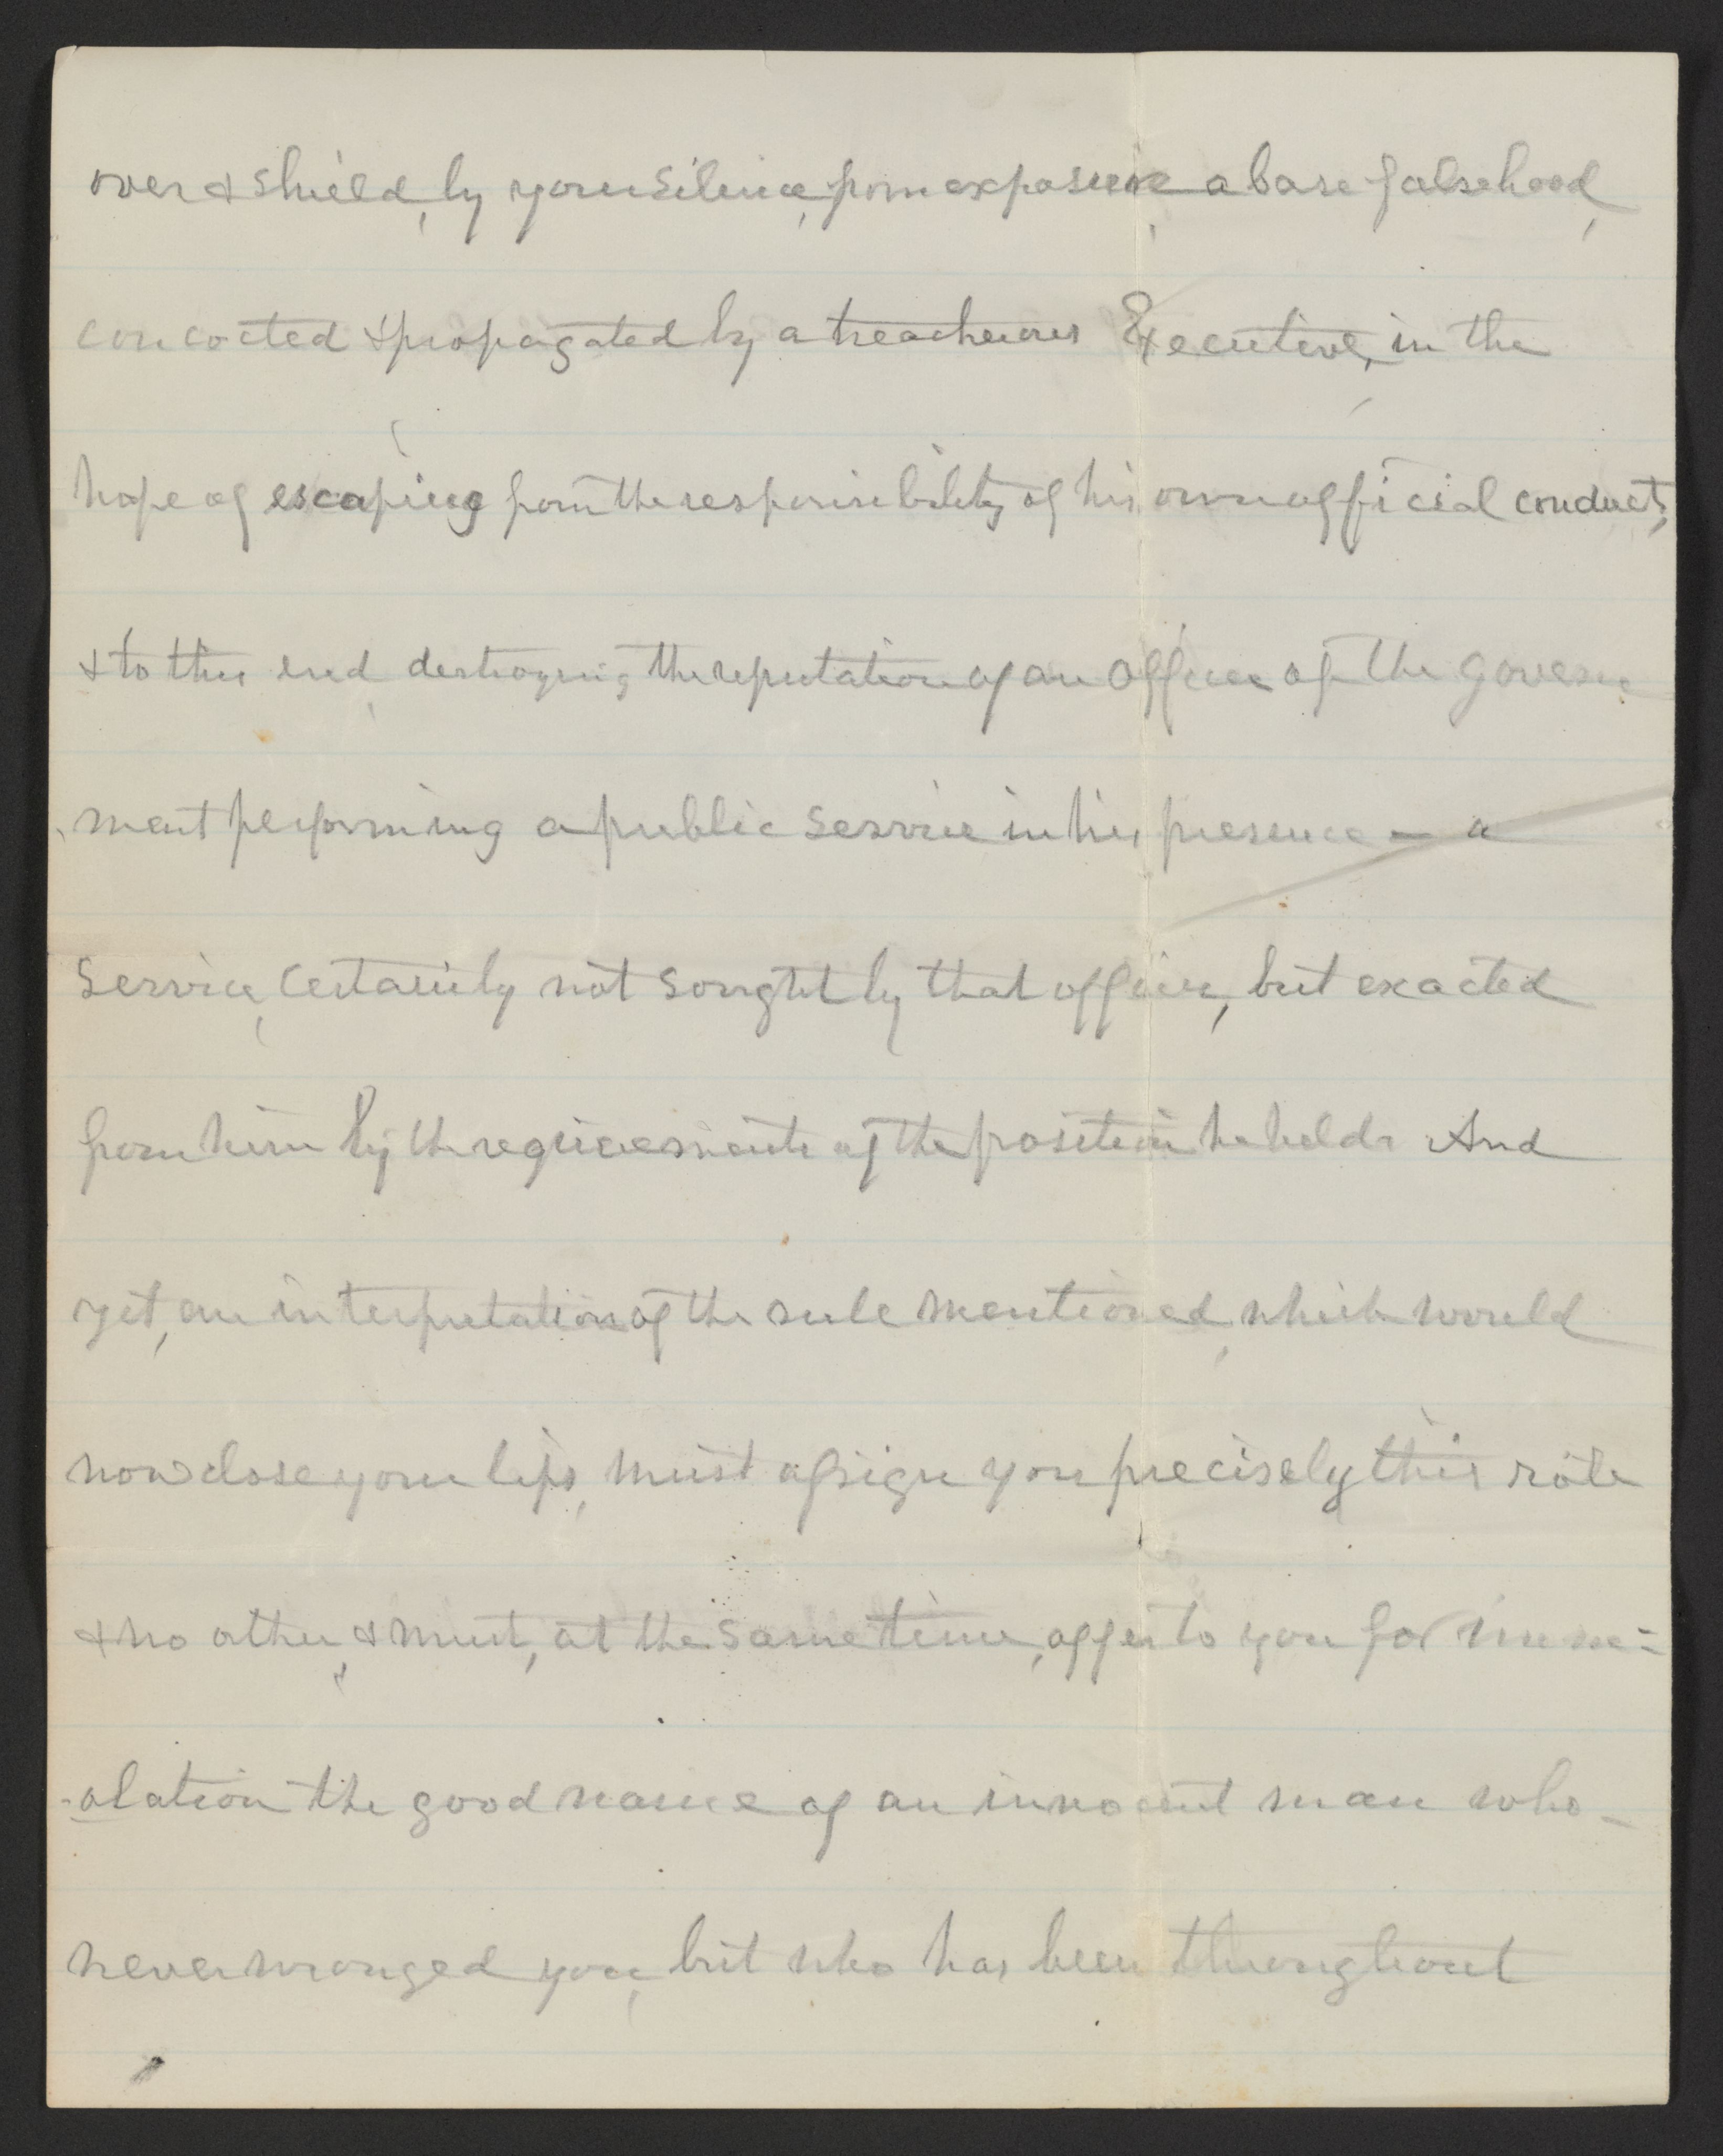 over & shield, by your silence, from exposure a base falsehood,
concocted & propagated by a treacherous Executive, in the
hope of escaping from the responsibility of his own official conduct,
& to this end, destroying the reputation of an officer of the govern
-ment performing a public service in his presence — a
service, certainly not sought by that officer, but exacted
from him by the requirements of the position he held. And
yet, an interpretation of the rule mentioned, which would
now close your lips, must assign you precisely this rôle
& no other, & must, at the same time, offer to you for imm-
-olation the good name of an innocent man who
never wronged you, but who has been throughout